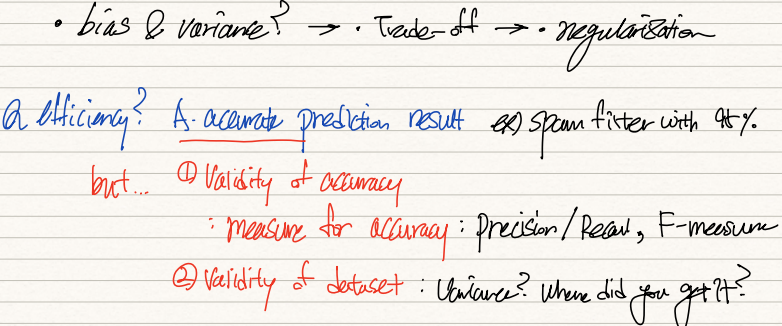 • bias & variance? → • Trade-off → • regularization
Q efficiency? A. accurate prediction result ex) spam filter with 95%
but... ① Validity of accuracy
: measure for accuracy : Precision/Recall, F-measure
② Validity of dataset : Variance? Where did you get it?